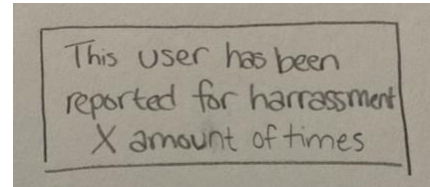 This user has been
reported for harrassment
X amount of times